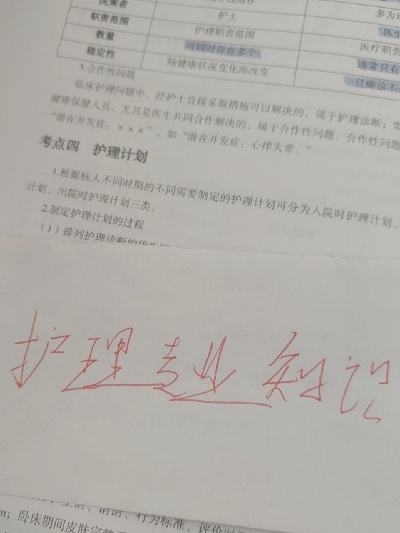 决策者 护士
职责范围 护理职责范围
数量 可同时存在多个
稳定性 随健康状况变化而改变
3.合作性问题
临床护理问题中，经护士直接采取措施可以解决的，属于护理诊断；需
健康保健人员，尤其是医生共同合作解决的，属于合作性问题。合作性问题
“潜在并发症：×××”，如“潜在并发症：心律失常。”
考点四 护理计划
1.根据病人不同时期的不同需要制定的护理计划可分为入院时护理计划、
计划、出院时护理计划三类。
2.制定护理计划的过程
（1）排列护理诊断的
护理专业知识
行为标准、评价时
卧床期间皮肤完整